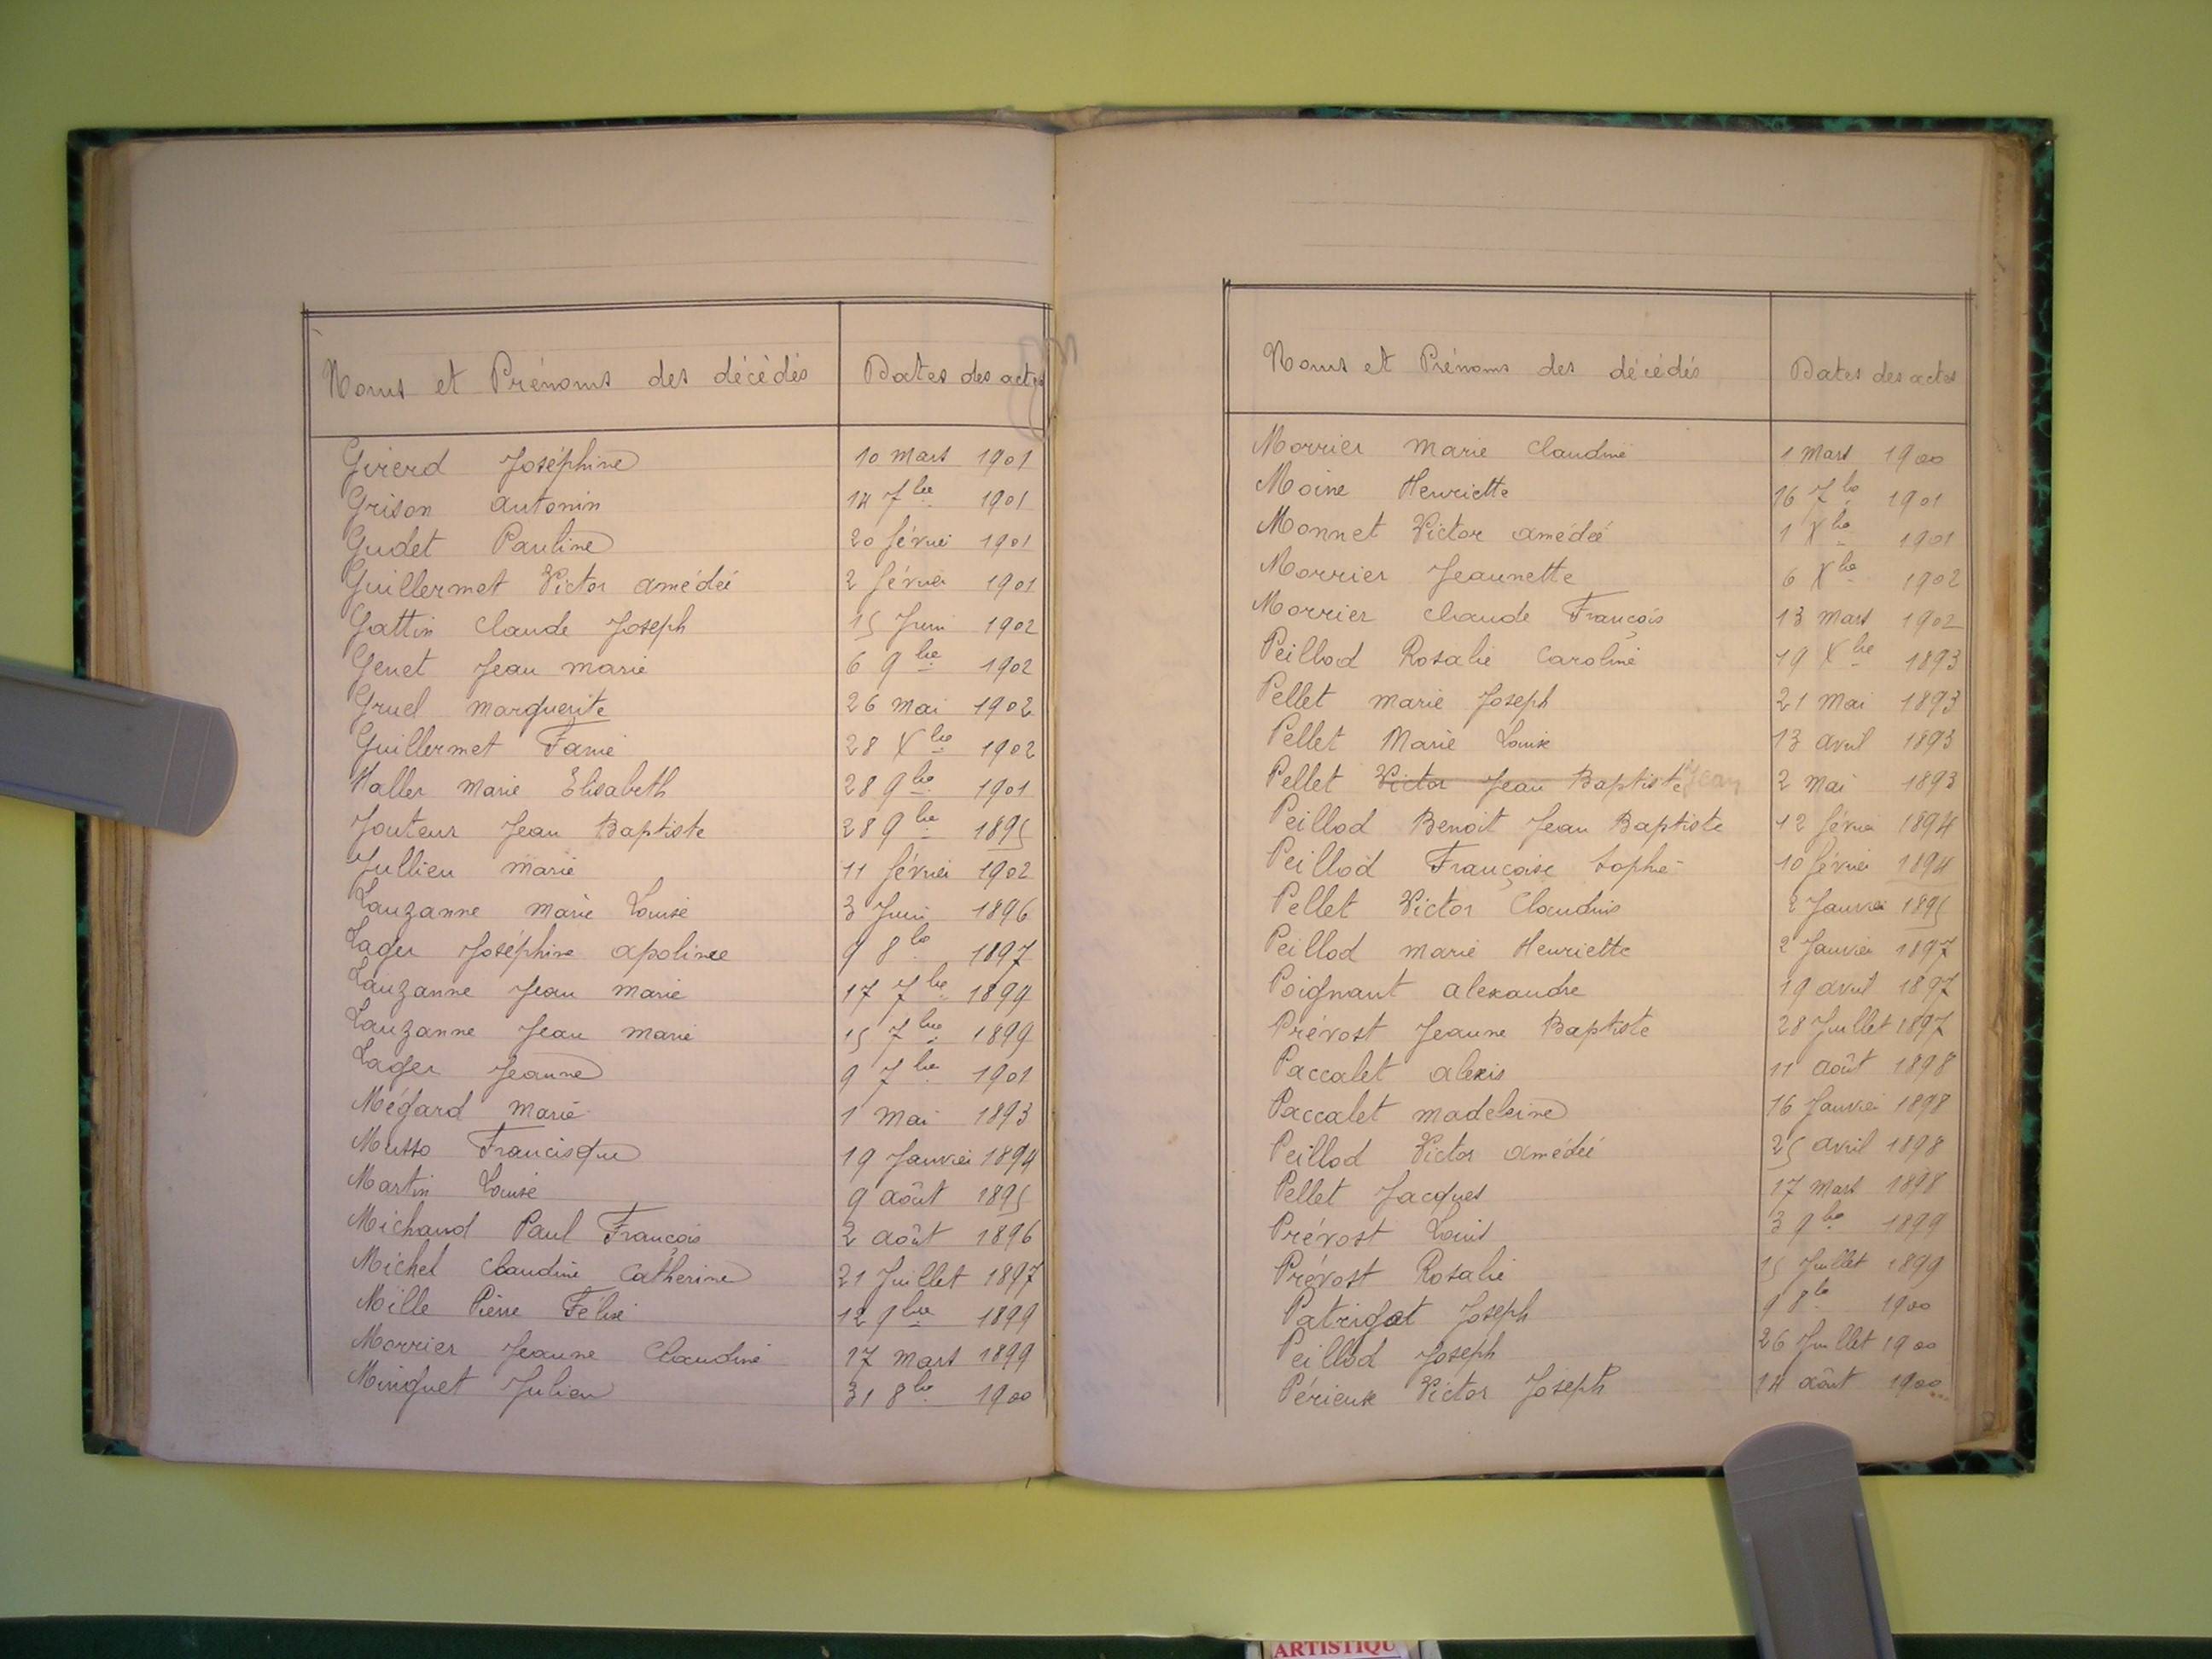 Noms et Prénoms des décédés Dates des actes
Girerd Joséphine 10 mars 1901
Grison antonin 14 7bre 1901
Gudet Pauline 20 février 1901
Guillermet Victor amédée 2 février 1901
Gattin Claude Joseph 15 Juin 1902
Genet Jean marie 6 9bre 1902
Gruel marguerite 26 mai 1902
Guillermet Fanie 28 Xbre 1902
Haller Marie Elisabeth 28 9bre 1901
Jouteur Jean Baptiste 28 9bre 1895
Jullien marie 11 février 1902
Lauzanne marie Louise 3 Juin 1896
Lager Joséphine apolinee 9 8bre 1897
Lauzanne Jean marie 17 7bre 1899
Lauzanne Jean marie 15 7bre 1899
Lager Jeanne 9 7bre 1901
Mégard Marie 1 mai 1893
Musso Francisque 19 Janvier 1894
Martin Louise 9 août 1895
Michaud Paul François 2 août 1896
Michel Claudine Catherine 21 Juillet 1897
Mille Pierre Félix 12 9bre 1899
Morrier Jeanne Claudine 17 mars 1899
Minguet Julien 31 8bre 1900
Noms et Prénoms des décédés Dates des actes
Morrier Marie Claudine 1 mars 1900
Moine Henriette 16 7bre 1901
Monnet Victor amédée 1 Xbre 1901
Morrier Jeannette 6 Xbre 1902
Morrier Claude François 13 mars 1902
Peillod Rosalie Caroline 19 Xbre 1893
Pellet marie Joseph 21 Mai 1893
Pellet Marie Louise 13 avril 1893
Pellet Victor Jean Baptiste Jean 2 Mai 1893
Peillod Benoit Jean Baptiste 12 février 1894
Peillod Françoise Sophie 10 février 1894
Pellet Victor Claudius 2 Janvier 1895
Peillod marie Henriette 2 Janvier 1897
Poignant alexandre 19 avril 1897
Prévost Jeanne Baptiste 28 Juillet 1897
Paccalet alexis 11 août 1898
Paccalet madeleine 16 Janvier 1898
Peillod Victor amédée 25 avril 1898
Pellet Jacques 17 mars 1898
Prévost Louis 3 9bre 1899
Prévost Rosalie 15 Juillet 1899
Patrigot Joseph 9 8bre 1900
Peillod Joseph 26 Juillet 1900
Périeux Victor Joseph 14 août 1900
ARTISTIQU